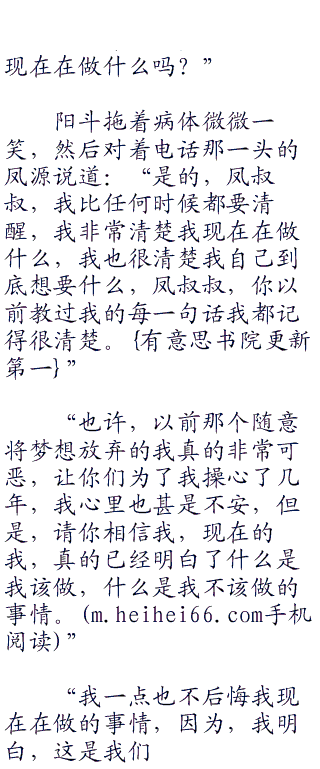 现在在做什么吗？”
阳斗拖着病体微微一
笑，然后对着电话那一头的
凤源说道：“是的，凤叔
叔，我比任何时候都要清
醒，我非常清楚我现在在做
什么，我也很清楚我自己到
底想要什么，凤叔叔，你以
前教过我的每一句话我都记
得很清楚。{有意思书院更新
第一}”
“也许，以前那个随意
将梦想放弃的我真的非常可
恶，让你们为了我操心了几
年，我心里也甚是不安，但
是，请你相信我，现在的
我，真的已经明白了什么是
我该做，什么是我不该做的
事情。(m.heihei66.com手机
阅读)”
“我一点也不后悔我现
在在做的事情，因为，我明
白，这是我们